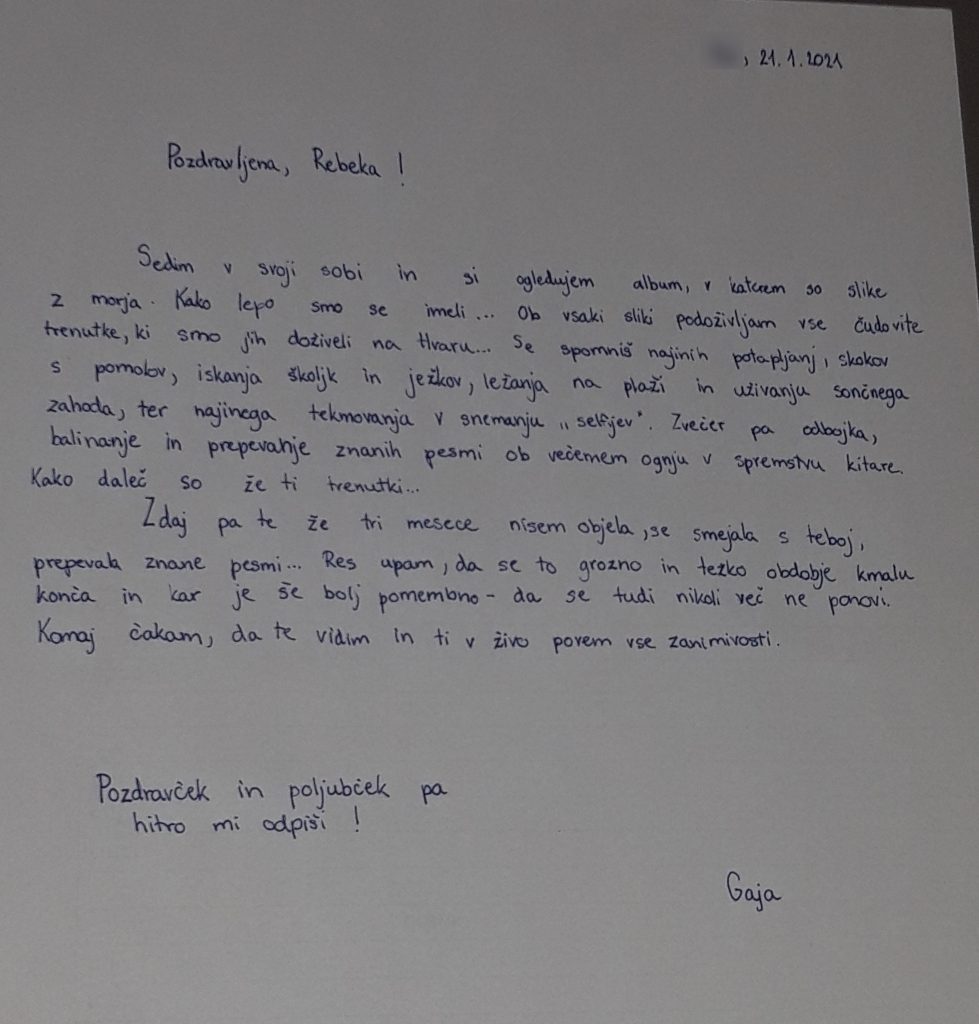 , 21.1.2021
Pozdravljena, Rebeka !
Sedim v svoji sobi in si ogledujem album, v katerem so slike
z morja. Kako lepo smo se imeli... Ob vsaki sliki podoživljam vse čudovite
trenutke, ki smo jih doživeli na Hvaru... Se spomniš najinih potapljanj, skokov
s pomolov, iskanja školjk in ježkov, ležanja na plaži in uživanju sončnega
zahoda, ter najinega tekmovanja v snemanju „selfijev“. Zvečer pa odbojka,
balinanje in prepevanje znanih pesmi ob večernem ognju v spremstvu kitare.
Kako daleč so že ti trenutki...
Zdaj pa te že tri mesece nisem objela, se smejala s teboj,
prepevala znane pesmi... Res upam, da se to grozno in težko obdobje kmalu
konča in kar je še bolj pomembno - da se tudi nikoli več ne ponovi.
Komaj čakam, da te vidim in ti v živo povem vse zanimivosti.
Pozdravček in poljubček pa
hitro mi odpiši !
Gaja